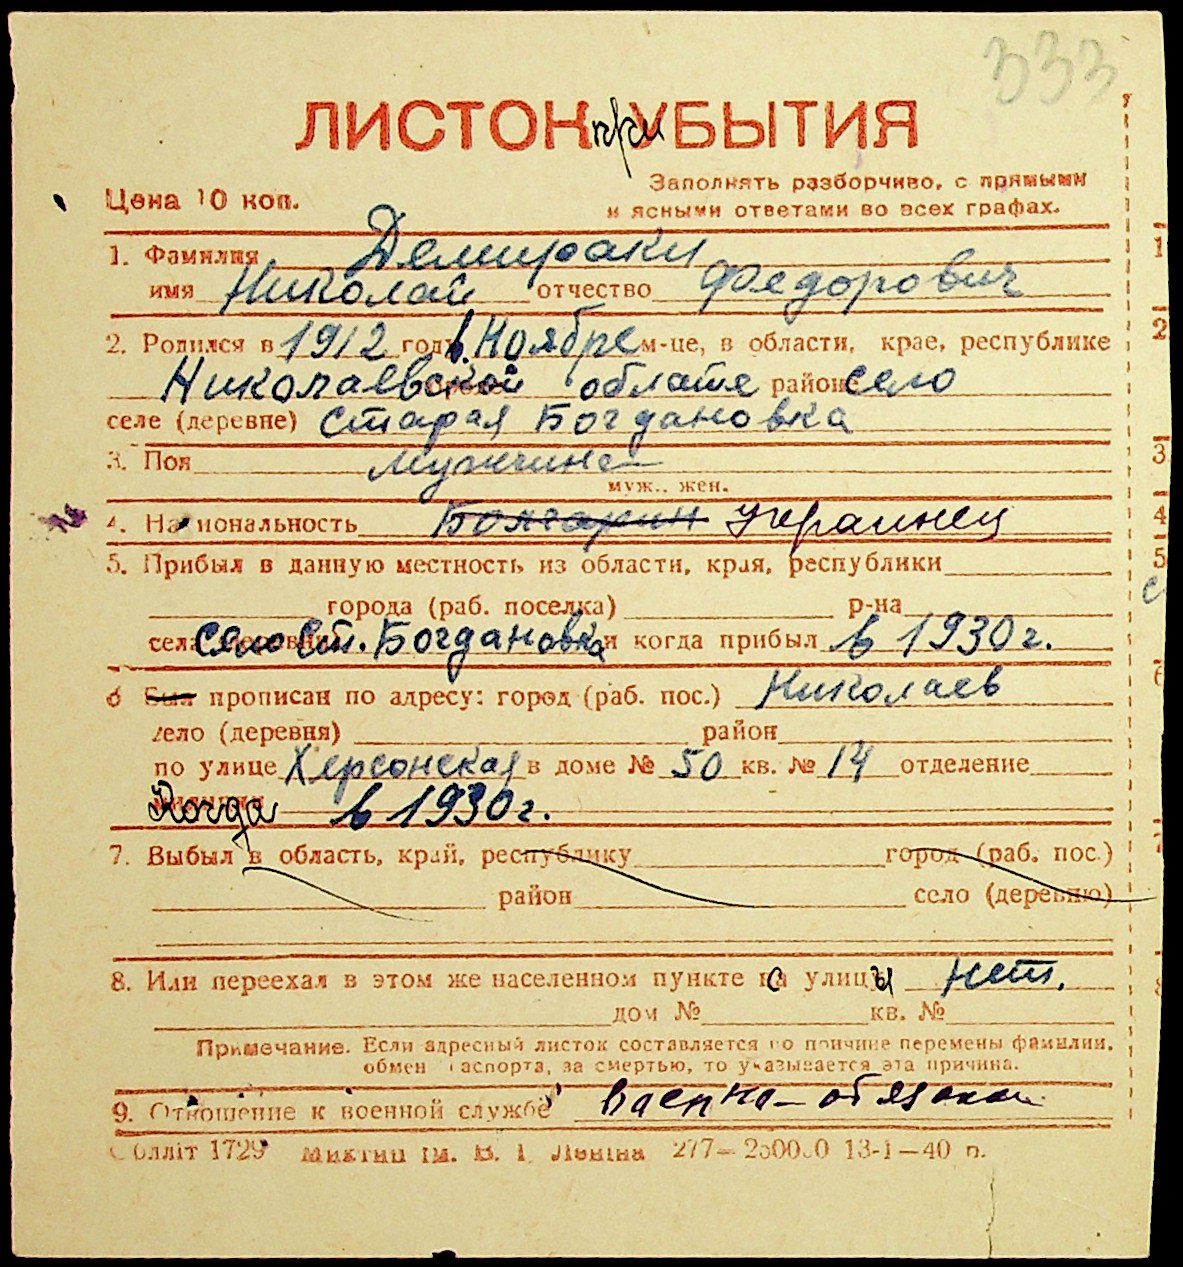 333
ЛИСТОК при УБЫТИЯ
Цена 10 коп.
Заполнять разборчиво, с прямыми
и ясными ответами во всех графах.
1. Фамилия Демираки
имя Николай отчество Федорович
2. Родился в 1912 году в Ноябре м-це, в области, крае, республике
Николаевской облате районе село
селе (деревне) Старая Богдановка
3. Пол мужчина
муж., жен.
4. Национальность Болгарин Украинец
5. Прибыл в данную местность из области, края, республики
города (раб. поселка) р-на
села село Ст. Богдановка и когда прибыл в 1930 г.
6 Был прописан по адресу: город (раб. пос.) Николаев
село (деревня) район
по улице Херсонская в доме № 50 кв. № 14 отделение
милиции Когда в 1930 г.
7. Выбыл в область, край, республику город (раб. пос.)
район село (деревню)
8. Или переехал в этом же населенном пункте с улицы нет.
дом № кв. №
Примечание. Если адресный листок составляется по причине перемены фамилии,
обмен паспорта, за смертью, то указывается эта причина.
9. Отношение к военной службе Ваенна-обязаный
Облліт 1729 ім. В. І. Леніна 277—250000 13-1—40 п.